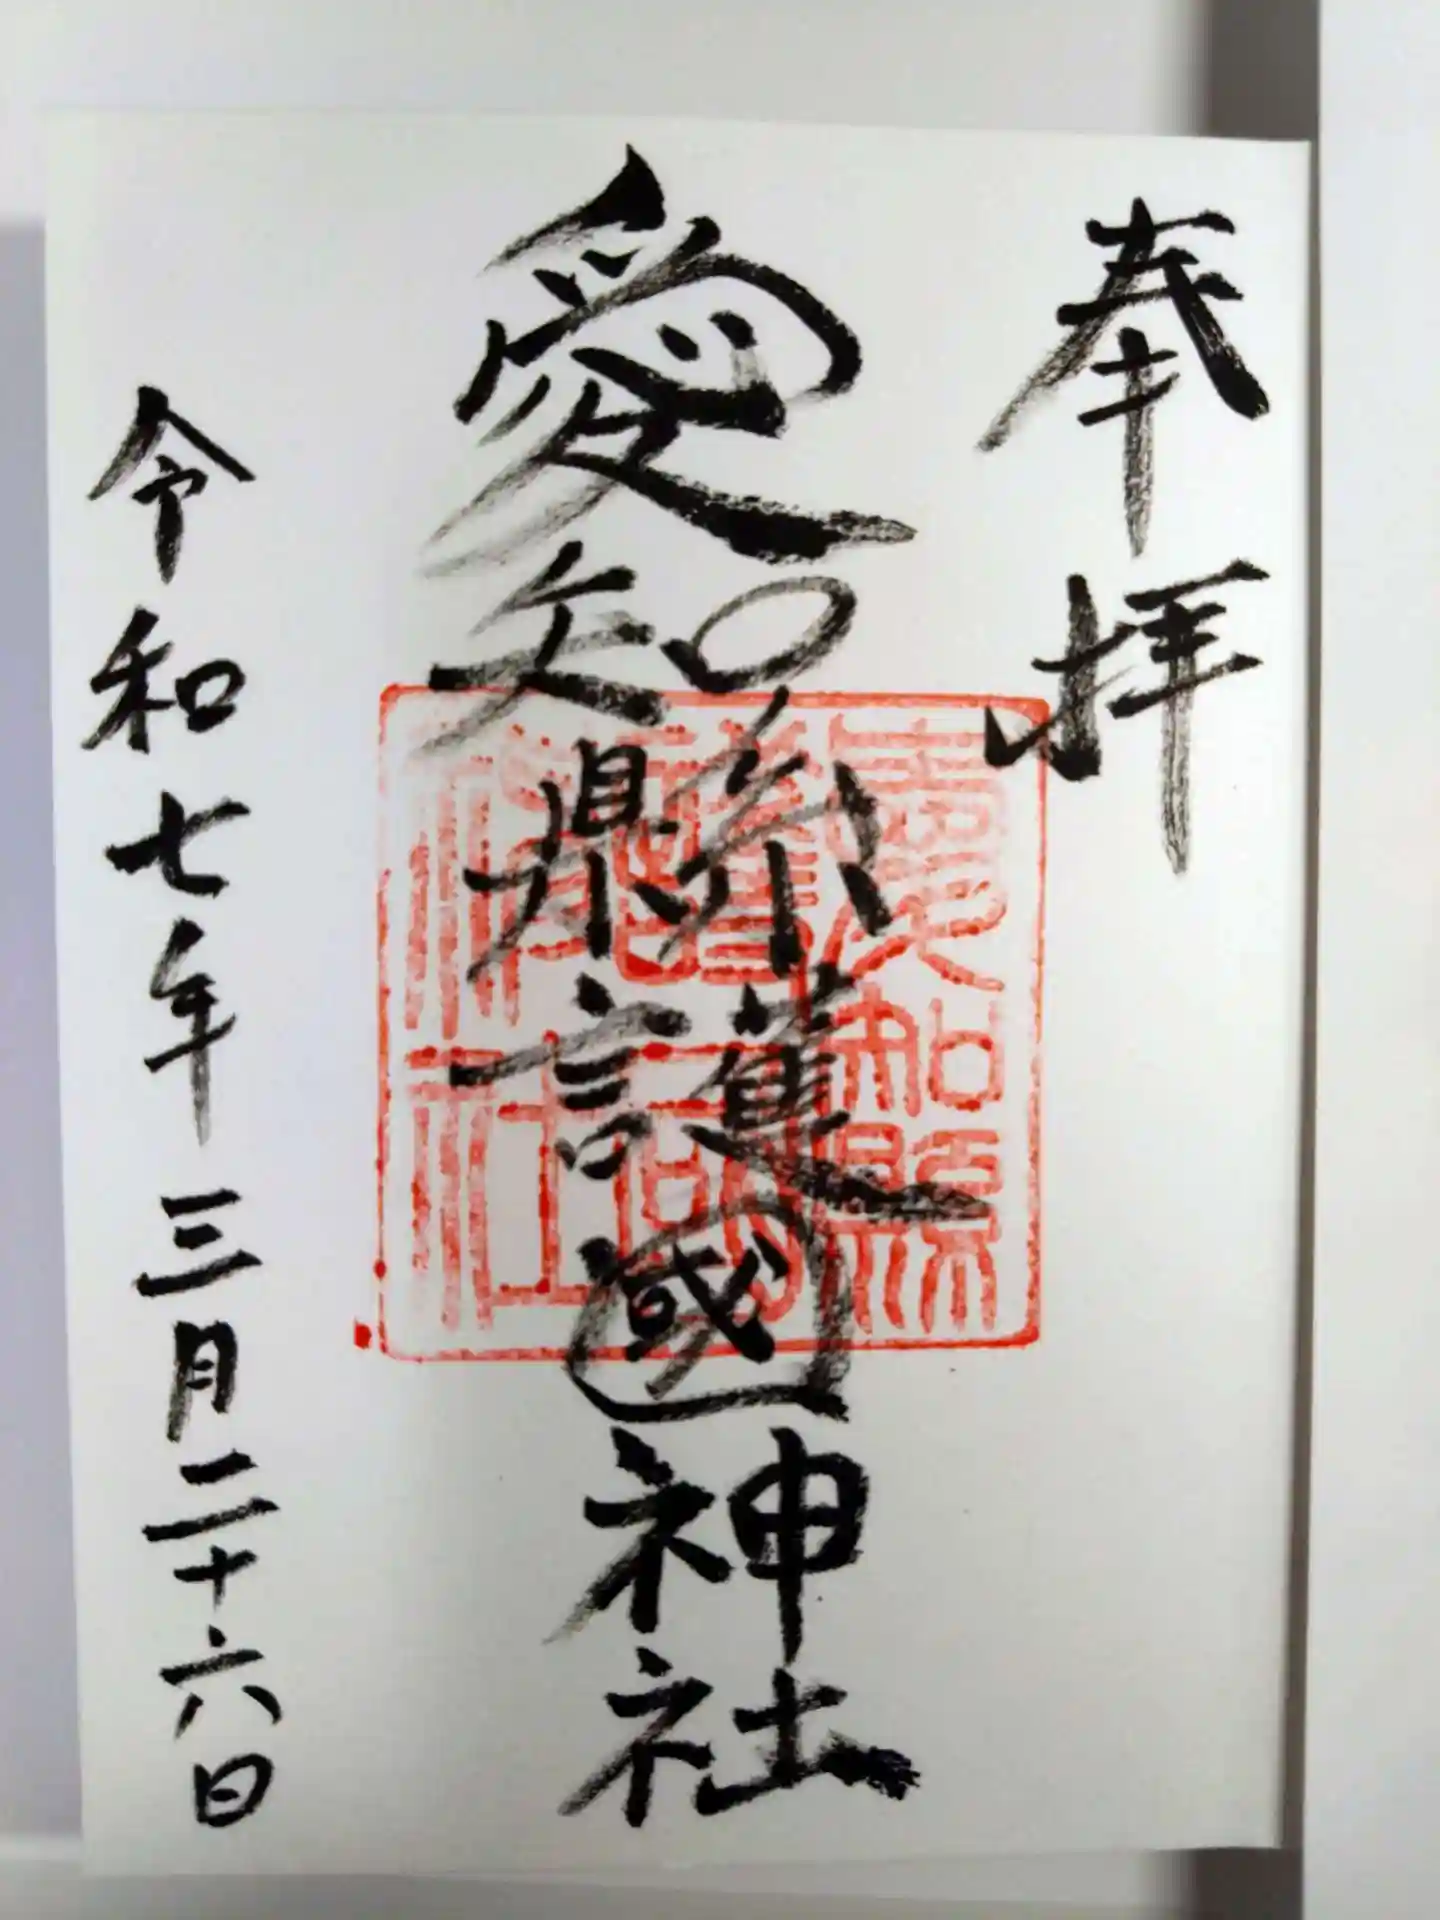 奉拝
愛知縣護國神社
愛知縣
護國
神社
令和七年三月二十六日